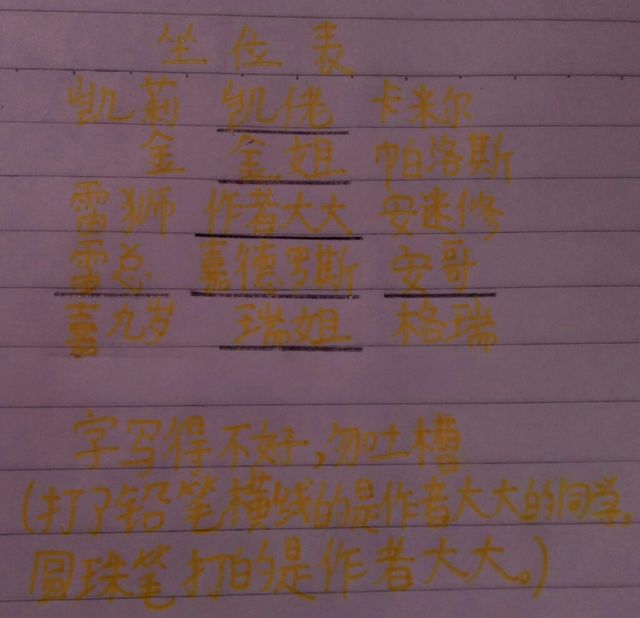 坐位表
凯莉 凯佬 卡米尔
金 金姐 帕洛斯
雷狮 作者大大 安迷修
雷总 嘉德罗斯 安哥
嘉九岁 瑞姐 格瑞
字写得不好,勿吐槽
(打了铅笔横线的是作者大大的同学,
圆珠笔打的是作者大大。)